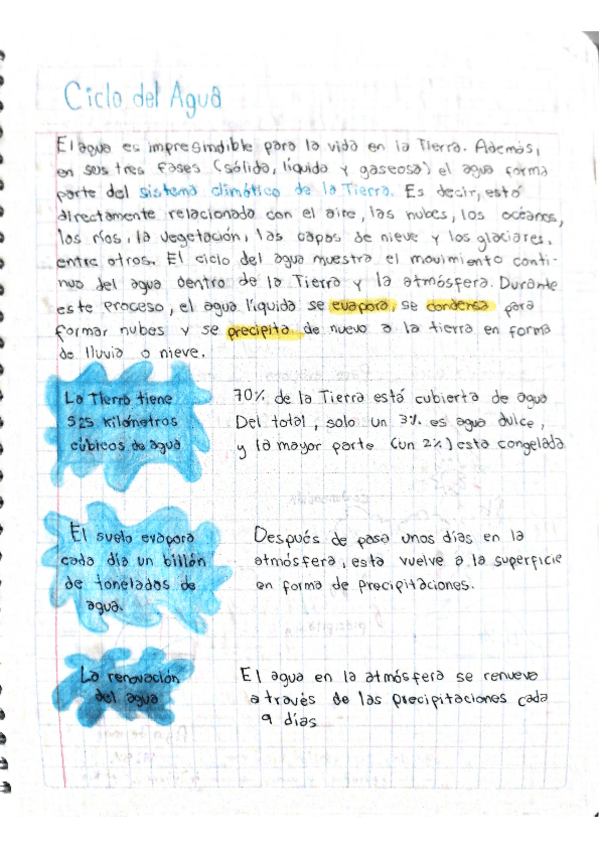 Ciclo del Agua
El agua es impresindible para la vida en la Tierra. Además,
en sus tres fases (sólida, líquida y gaseosa) el agua forma
parte del sistema climático de la Tierra. Es decir, está
directamente relacionado con el aire, las nubes, los océanos,
los ríos, la vegetación, las capas de nieve y los glaciares,
entre otros. El ciclo del agua muestra el movimiento conti-
nuo del agua dentro de la Tierra y la atmósfera. Durante
este proceso, el agua líquida se evapora, se condensa para
formar nubes y se precipita de nuevo a la tierra en forma
de lluvia o nieve.
La Tierra tiene
525 kilómetros
cúbicos de agua
70% de la Tierra está cubierta de agua
Del total, solo un 3% es agua dulce,
y la mayor parte (un 2%) esta congelada
El suelo evapora
cada día un billón
de toneladas de
agua.
Después de pasa unos días en la
atmósfera, esta vuelve a la superficie
en forma de precipitaciones.
La renovación
del agua
El agua en la atmósfera se renueva
a través de las precipitaciones cada
9 días